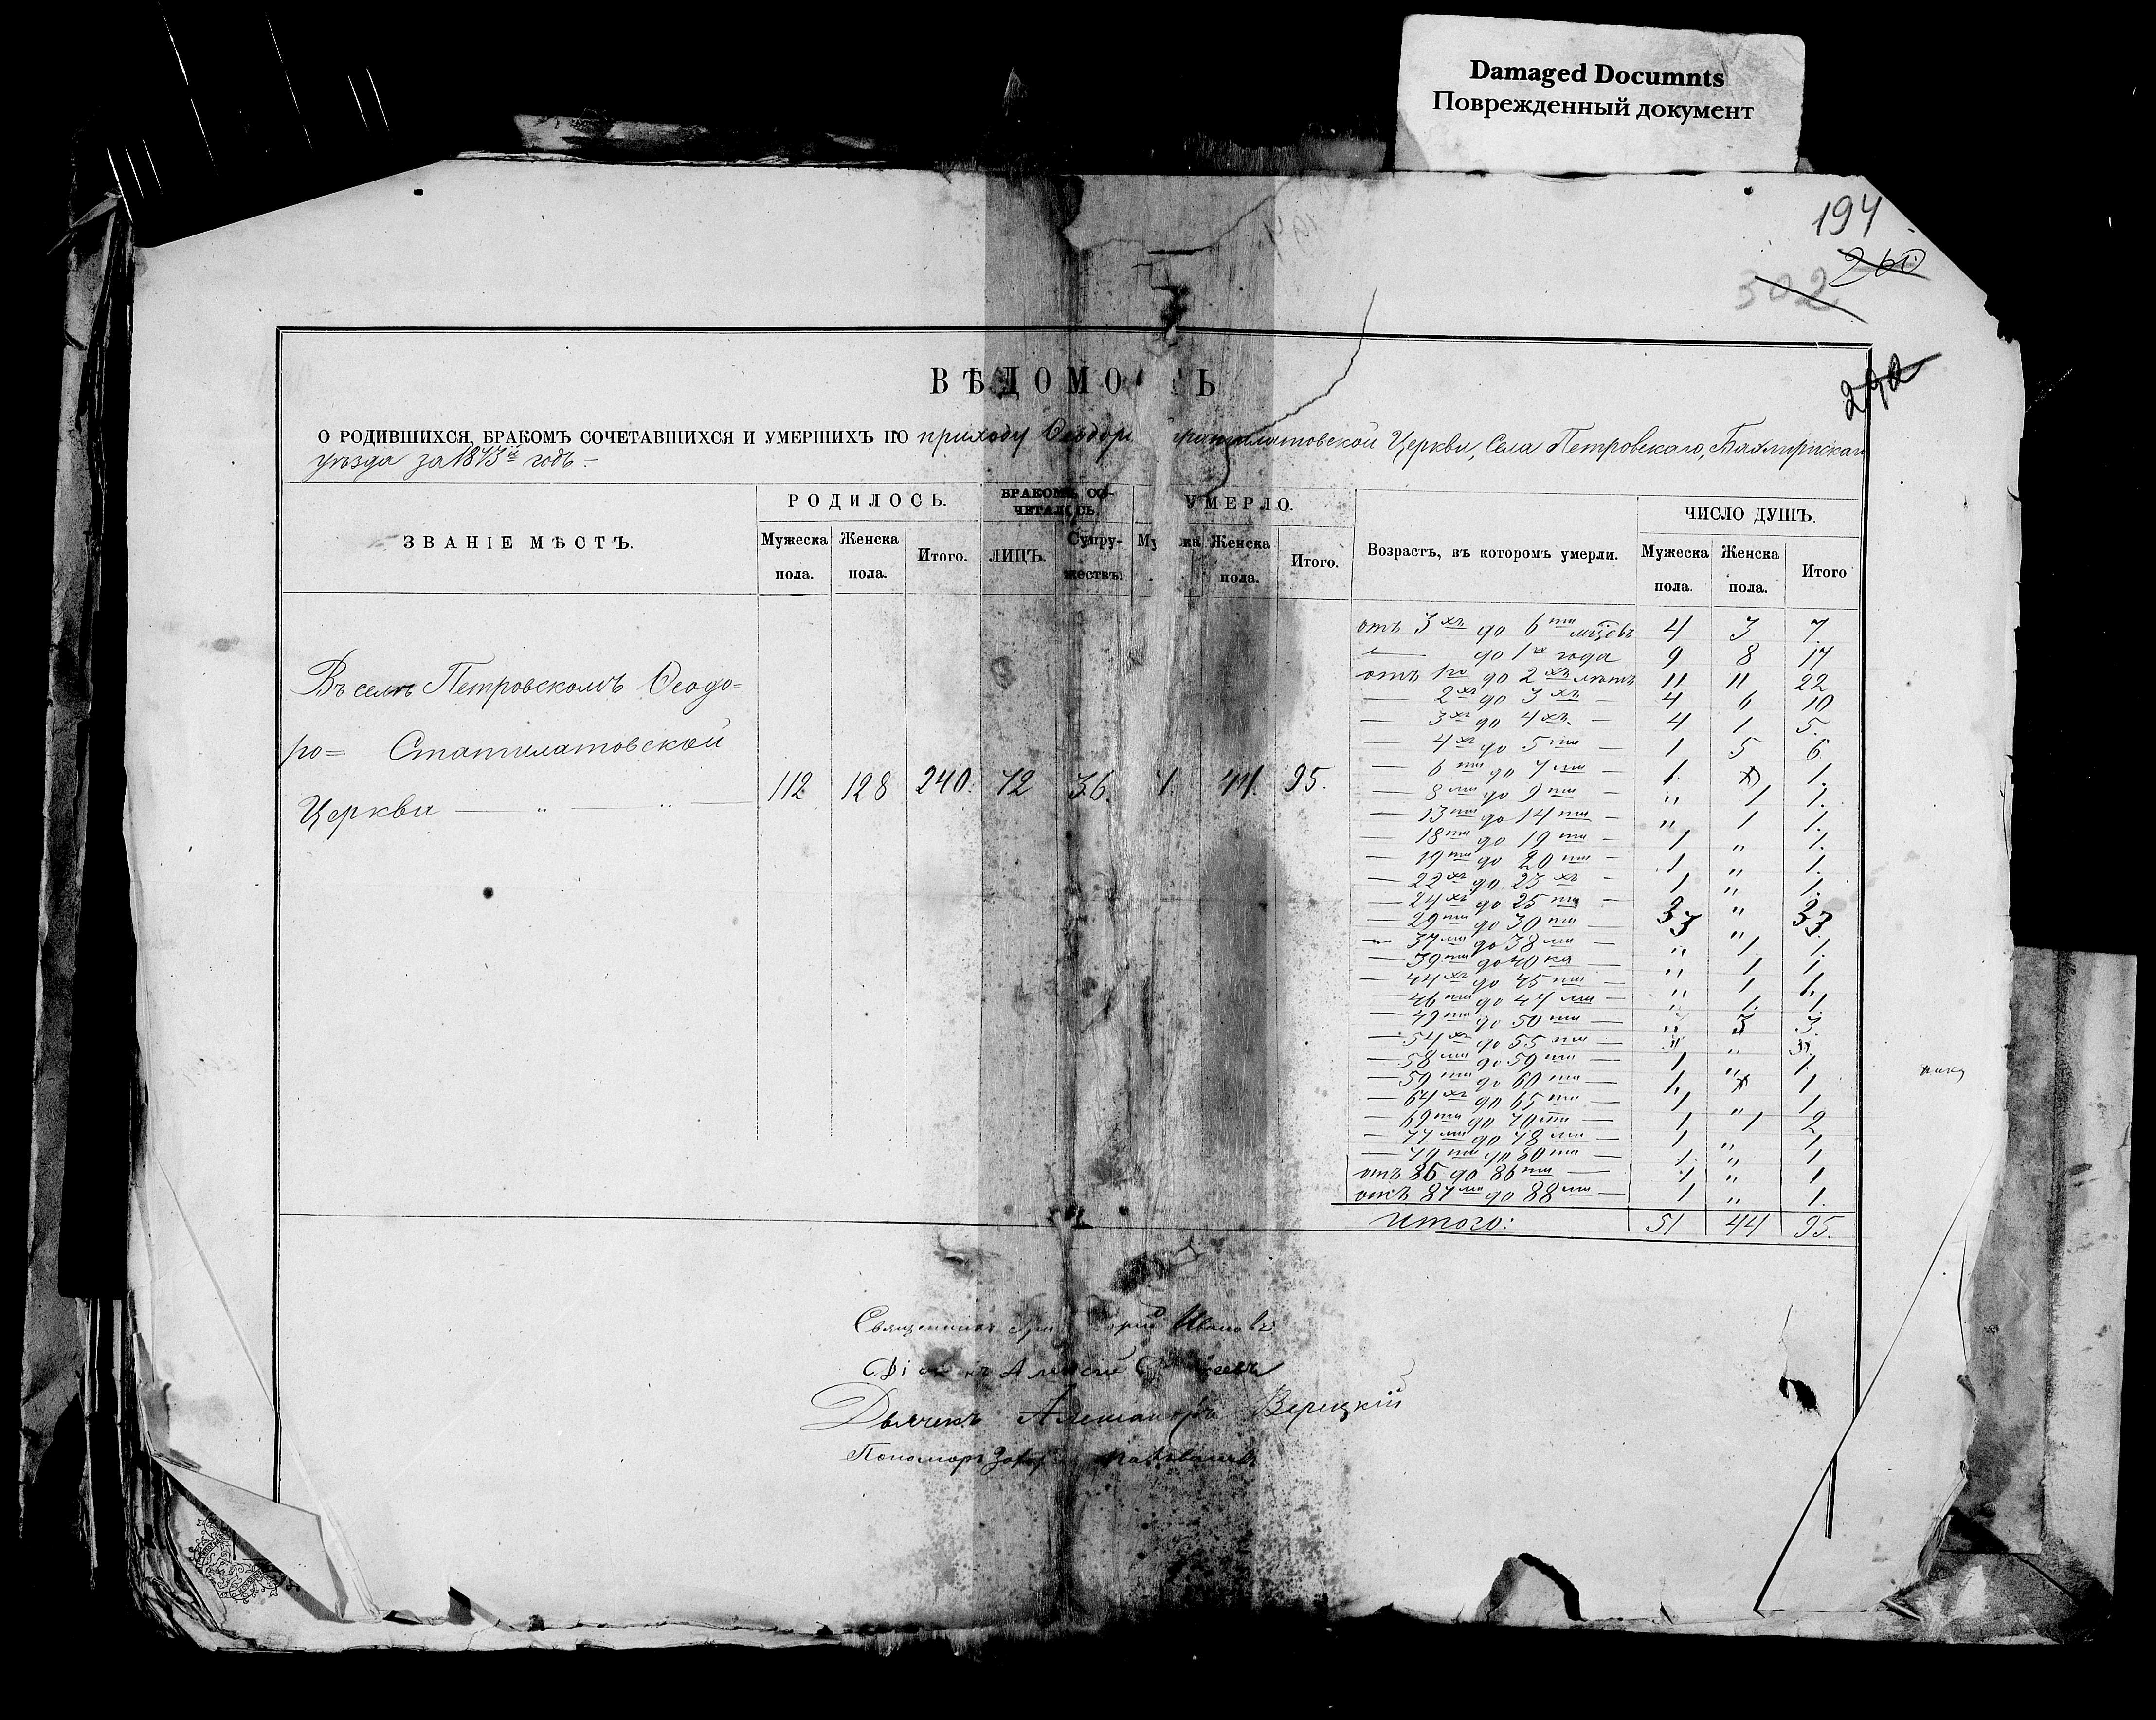 Damaged Documnts
Поврежденный документ
194
260
302
292
ВѢДОМО Ь
О РОДИВШИХСЯ, БРАКОМЪ СОЧЕТАВШИХСЯ И УМЕРШИХЪ ПО приходу Ѳеодор Стратилатовской Церкви, Села Петровскаго, Бахмутскаго
уѣзда за 1873й годъ.–
ЗВАНІЕ МѢСТЪ.
РОДИЛОСЬ.
БРАКОМЪ СО-
ЧЕТАЛОСЬ.
УМЕРЛО.
Возрастъ, въ которомъ умерли.
ЧИСЛО ДУШЪ.
Мужеска пола.
Женска пола.
Итого.
ЛИЦЪ.
Супру-
жествъ.
Му жа
Женска пола.
Итого.
Мужеска пола.
Женска пола.
Итого
Въ селѣ Петровскомъ Ѳеодо=
ро= Статилатовской
Церкви — „ — „ —
112 128 240. 72 36. 44. 95.
отъ 3хъ до 6ти мѣсцовъ 4 3 7
— до 1го года 9 8 17
отъ 1го до 2хъ лѣтъ 11 11 22
— 2хъ до 3хъ — 4 6 10
— 3хъ до 4хъ — 4 1 5.
— 4хъ до 5ти — 1 5 6
— 6ти до 7ми — 1. 1.
— 8ми до 9ти — „ 1 1.
— 13ти до 14ти — „ 1 1.
— 18ти до 19ти — 1 „ 1.
— 19ти до 20ти — 1 „ 1.
— 22хъ до 23хъ — 1 „ 1.
— 24хъ до 25ти — „
— 29ти до 30ти — 3 „ 3
— 37ми до 38ми — „ 1 1.
— 39ти до 40ка — „ 1 1.
— 44хъ до 45ти — „ 1 1.
— 46ти до 47ми — „ 1. 1.
— 49ти до 50ти — „ 3 3.
— 54хъ до 55ти — „
— 58ми до 59ти — 1 „ 1.
— 59ти до 60ти — 1 1
— 64хъ до 65ти — 1 „ 1
— 69ти до 70ти — 1 1 2
— 77ми до 78ми — 1 „ 1
— 79ти до 80ти — 1 „ 1
отъ 85 до 86ти — 1 „ 1
отъ 87ми до 88ми — 1 „ 1.
Итого: 51 44 95.
Священникъ Ивановъ
Алексѣй
Дьячекъ Александръ Верецкій
Пономарь